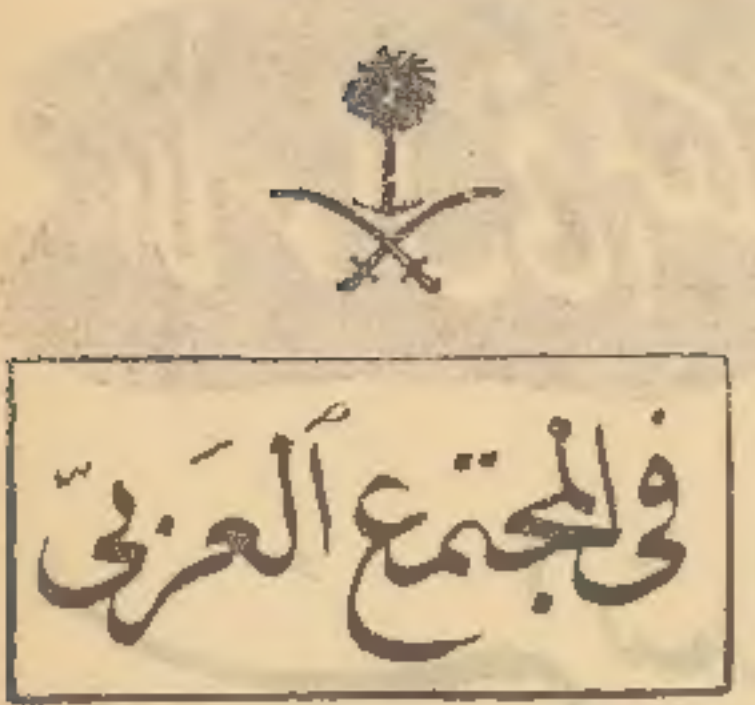 في المجتمع ٱلعَربيّ